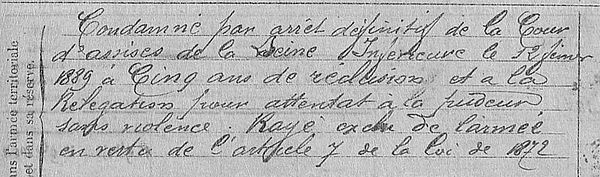 Condamné par arrêt définitif de la Cour
d'assises de la Seine Inférieure le 12 février
1889 à Cinq ans de réclusion et a la
Relegation pour attentat a la pudeur
sans violence. Rayé exclu de l'armée
en vertu de l'article 7 de la Loi de 1872
ans l'armée territoriale
et dans sa réserve.